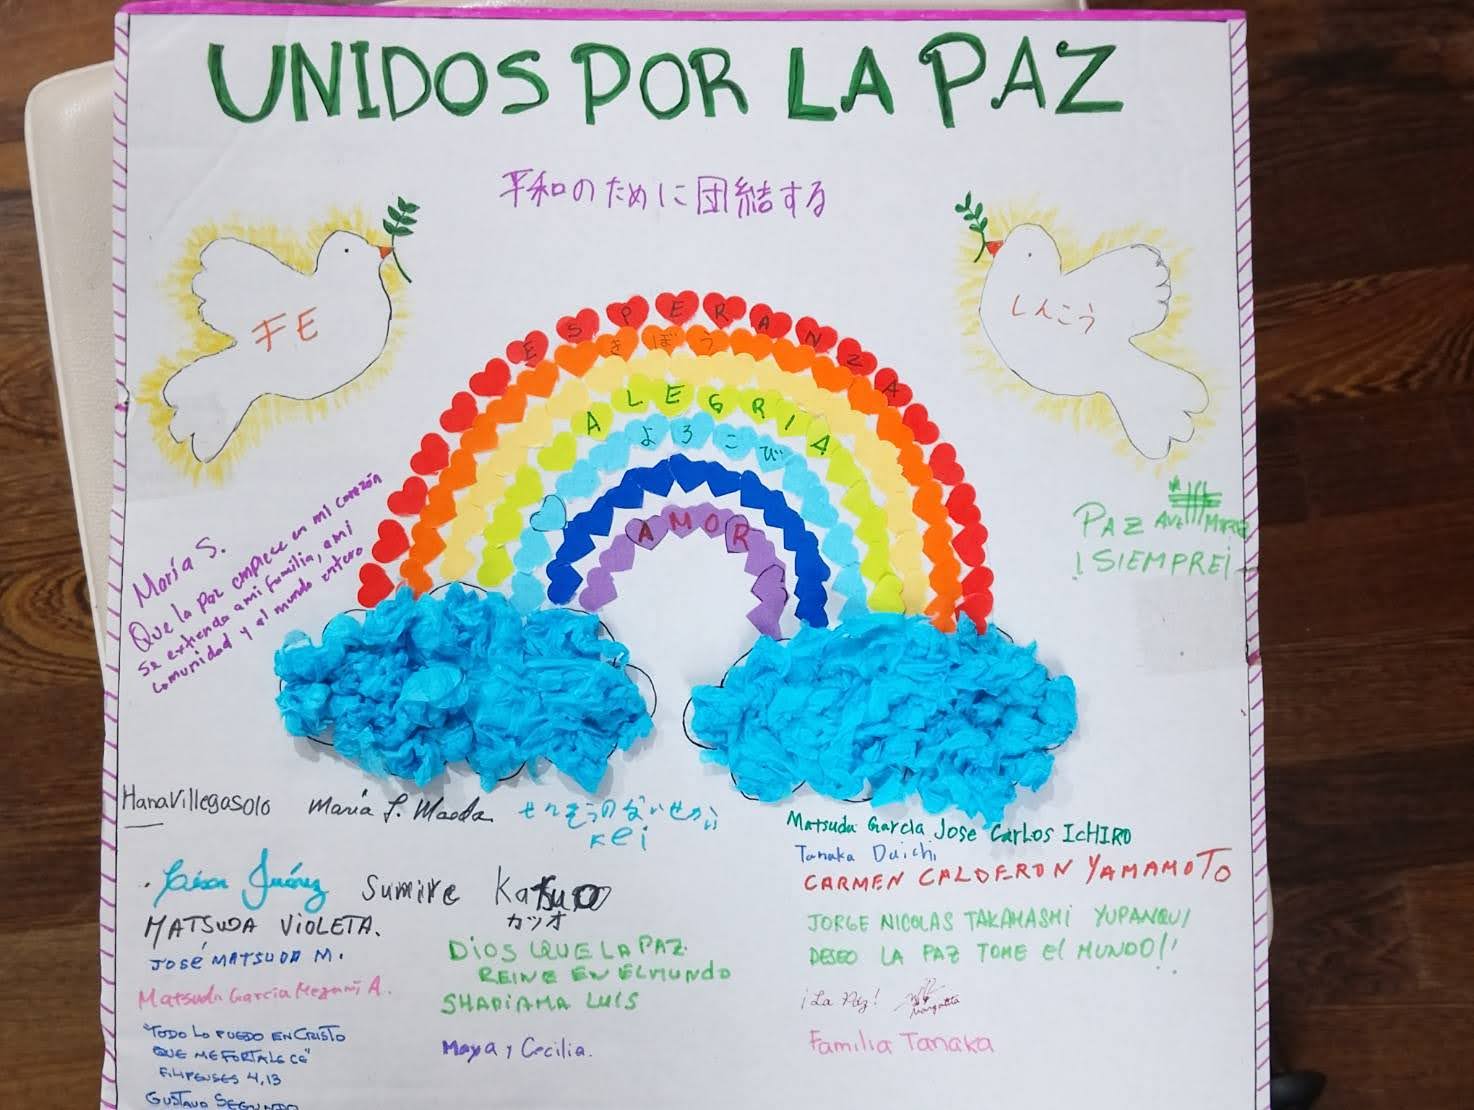 UNIDOS POR LA PAZ
平和のために団結する
FE
しんこう
ESPERANZA
きぼう
ALEGRIA
よろこび
AMOR
María S.
Que la Paz empiece en mi corazón
se extienda a mi familia, a mi
comunidad y al mundo entero
PAZ
¡SIEMPRE!
Hana Villegas Olo
María F. Maeda
せんそうのないせかい
Kei
Juárez
Sumire
カツオ
MATSUDA VIOLETA.
JOSÉ MATSUDA M.
Matsuda Garcia Megami A.
"TODO LO PUEDO EN CRISTO
QUE ME FORTALECE"
FILIPENSES 4,13
GUSTAVO SEGUNDO
DIOS QUE LA PAZ
REINE EN EL MUNDO
SHAPIAMA LUIS
Maya y Cecilia.
Matsuda García Jose Carlos IcHIRO
Tanaka Daichi
CARMEN CALDERON YAMAMOTO
JORGE NICOLAS TAKAHASHI YUPANQUI
DESEO LA PAZ TOME el MUNDO!!
¡La Paz!
Margarita
Familia Tanaka